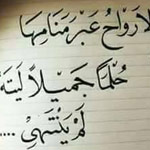 لارواح عبر منامها
حلمًا جميلاً ليته
لم ينتهي ....